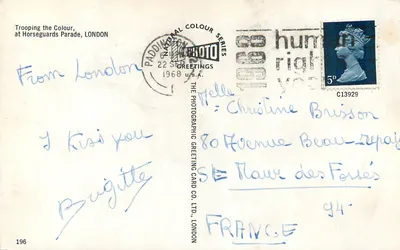 Trooping the Colour,
at Horseguards Parade, LONDON
From London
I Kiss you
Brigitte
196
NATIONAL COLOUR SERIES
PHOTO
GREETINGS
THE PHOTOGRAPHIC GREETING CARD CO. LTD., LONDON
PADDINGTON
22 SEP
1968
1968
human
rights
year
5D
C13929
Melle
Christine Brisson
80 Avenue Beau-Repaire
St Maur des Fossés
94
FRANCE